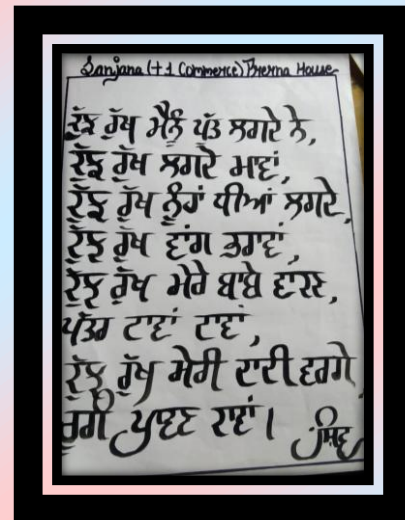 Sanjana (+1 Commerce) Prerna House
ਕੁੱਝ ਰੁੱਖ ਮੈਨੂੰ ਪੁੱਤ ਲਗਦੇ ਨੇ,
ਕੁੱਝ ਰੁੱਖ ਲਗਦੇ ਮਾਵਾਂ,
ਕੁੱਝ ਰੁੱਖ ਨੂੰਹਾਂ ਧੀਆਂ ਲਗਦੇ,
ਕੁੱਝ ਰੁੱਖ ਵਾਂਗ ਭਰਾਵਾਂ,
ਕੁੱਝ ਰੁੱਖ ਮੇਰੇ ਬਾਬੇ ਵਾਕਣ,
ਪੱਤਰ ਟਾਵਾਂ ਟਾਵਾਂ,
ਕੁੱਝ ਰੁੱਖ ਮੇਰੀ ਦਾਦੀ ਵਰਗੇ
ਚੂਰੀ ਪਾਵਣ ਕਾਵਾਂ।
ਸ਼ਿਵ